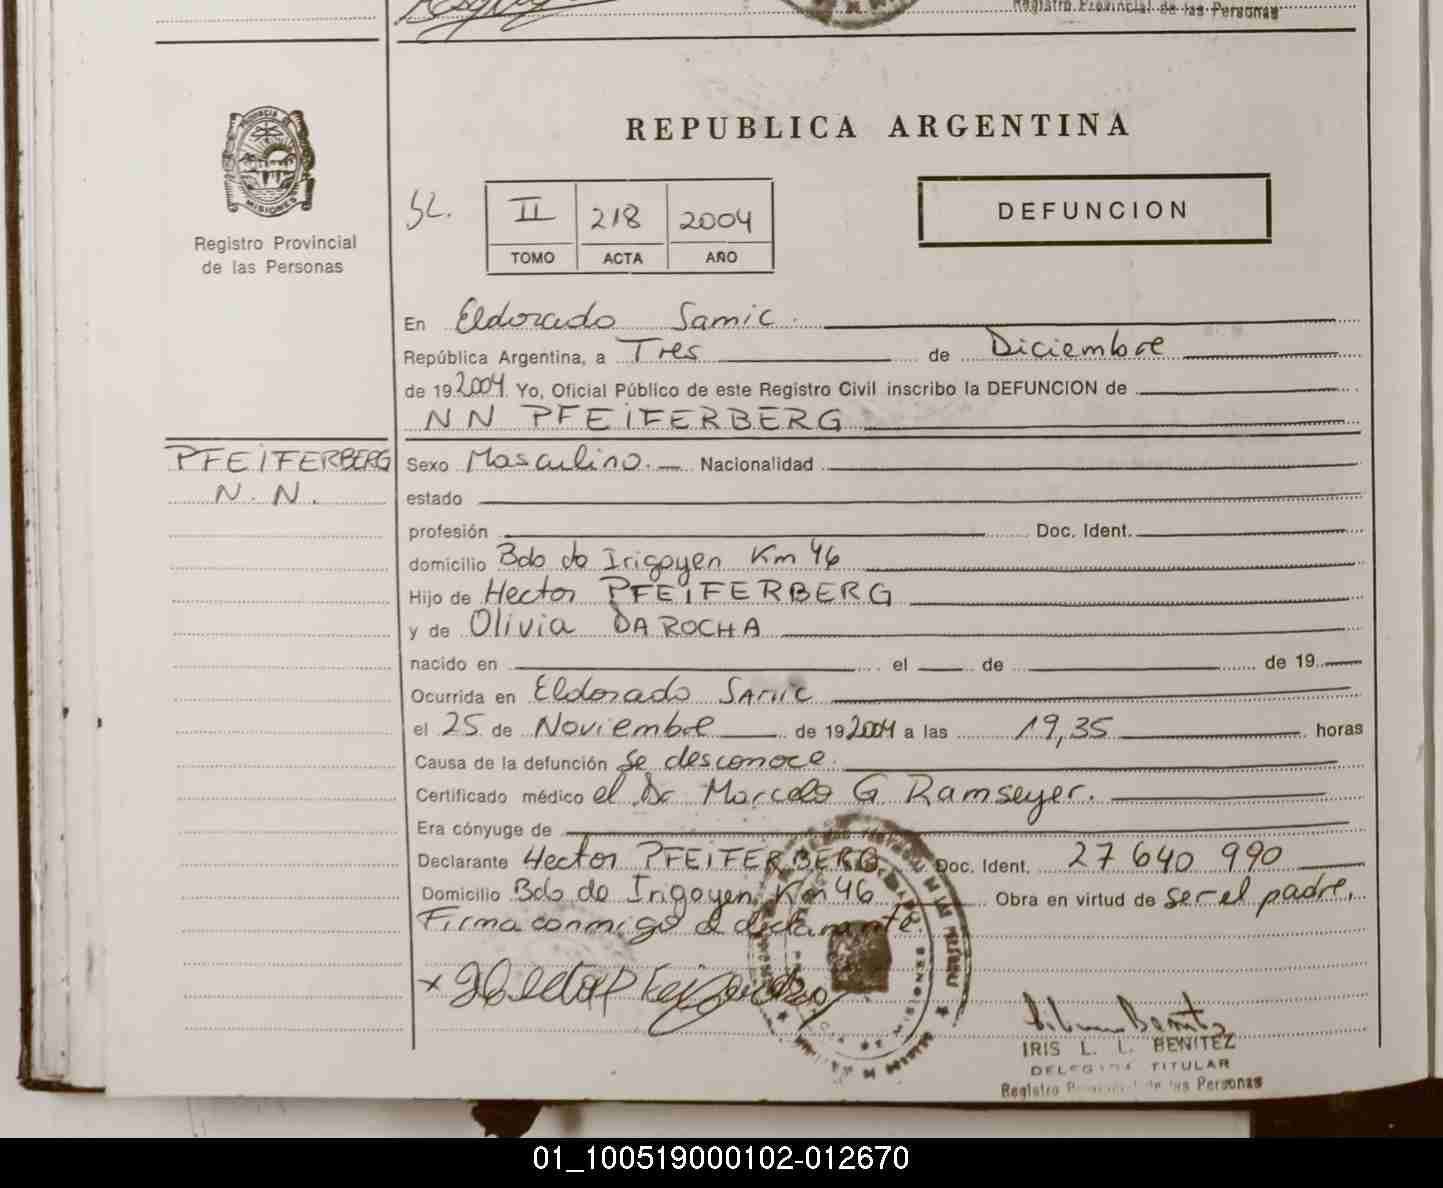 Registro Provincial de las Personas
PROVINCIA DE
MISIONES
Registro Provincial
de las Personas
REPUBLICA ARGENTINA
SL.
II 218 2004
TOMO ACTA AÑO
DEFUNCION
En Eldorado Samic.
República Argentina, a Tres de Diciembre
de 192004. Yo, Oficial Público de este Registro Civil inscribo la DEFUNCION de
NN PFEiFERBERG
PFEiFERBERG
N. N.
Sexo Masculino. Nacionalidad
estado
profesión Doc. Ident.
domicilio Bdo de Irigoyen Km 46
Hijo de Hector PFEiFERBERG
y de Olivia DA ROCHA
nacido en el de de 19
Ocurrida en Eldorado SAMIC
el 25 de Noviembre de 192004 a las 19,35 horas
Causa de la defunción Se desconoce.
Certificado médico el Dr Marcelo G Ramseyer.
Era cónyuge de
Declarante Hector PFEiFERBERG Doc. Ident. 27 640 990
Domicilio Bdo de Irigoyen Km 46 Obra en virtud de ser el padre.
Firma conmigo el declarante.
IRIS L. L. BENITEZ
DELEGADA TITULAR
Registro Provincial de las Personas
01_100519000102-012670